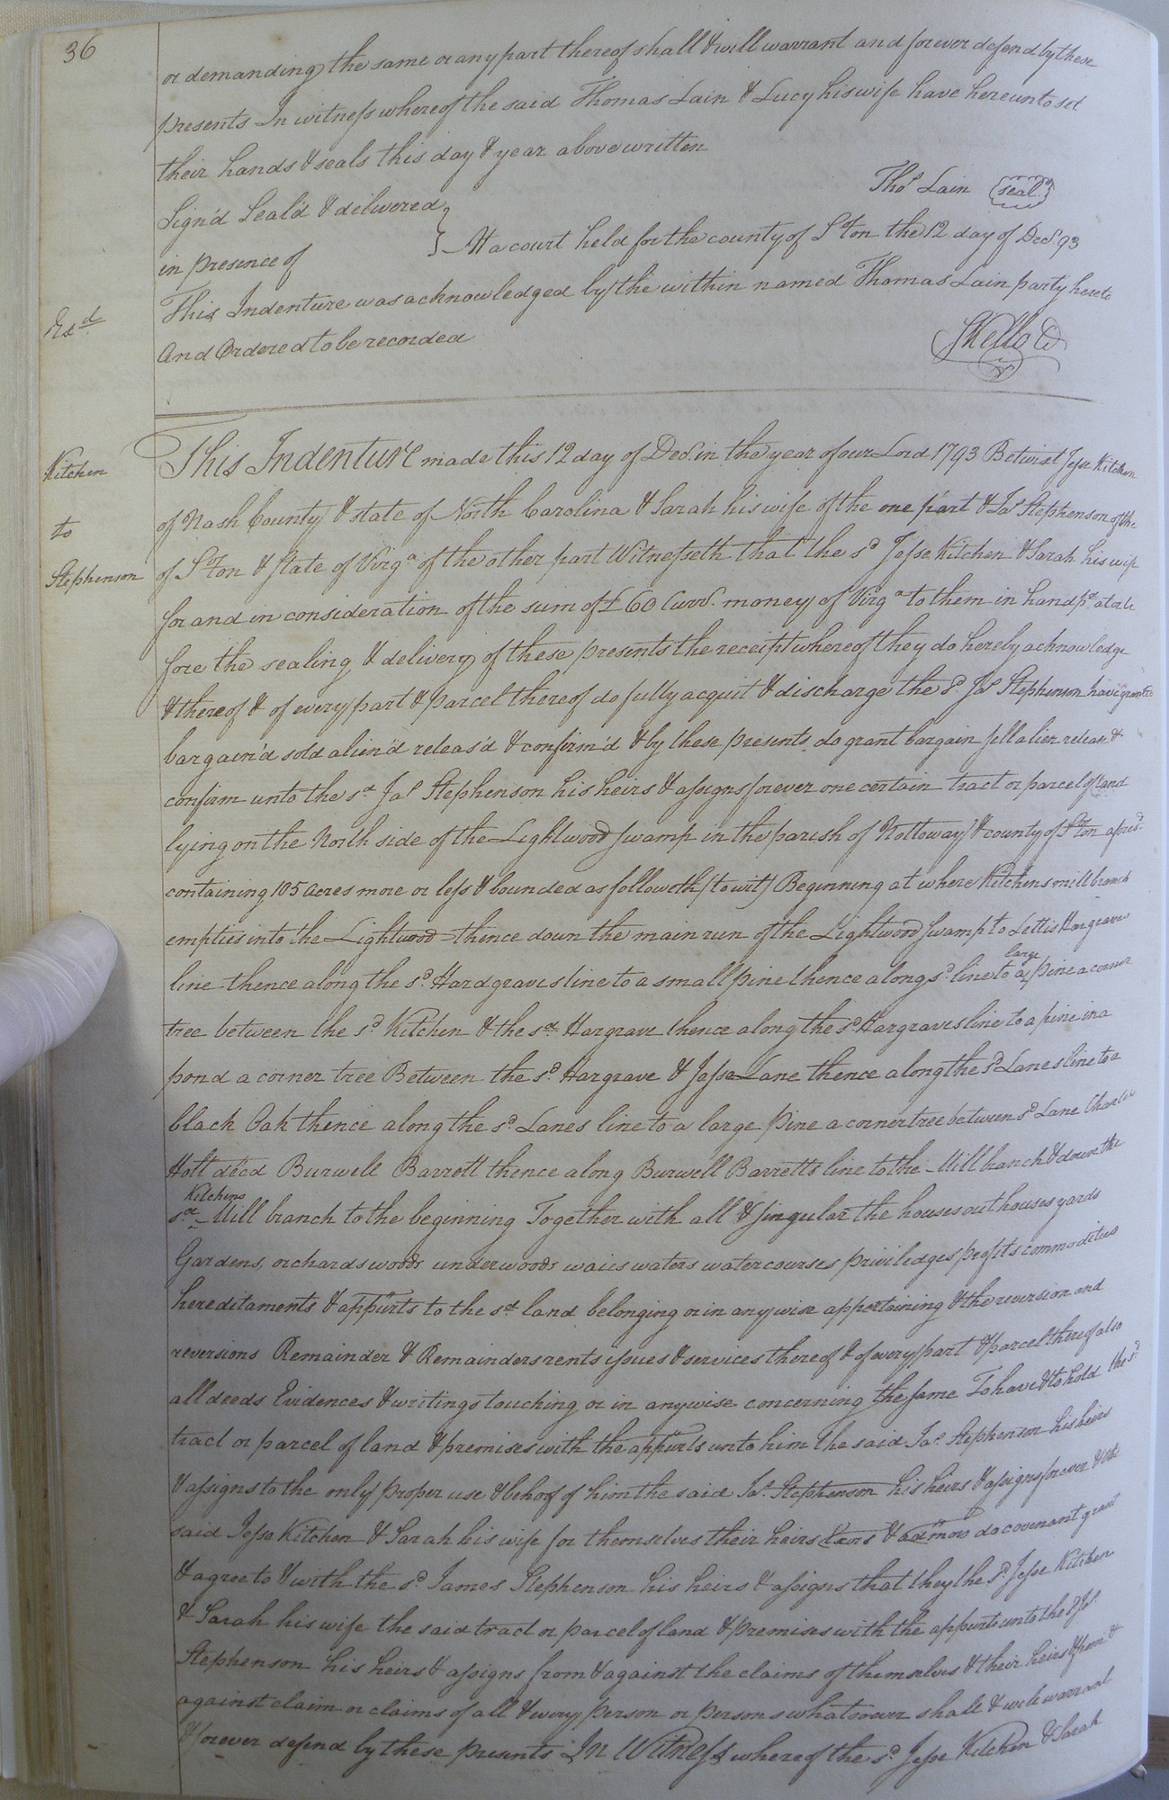 36
or demanding the same or any part thereof shall & will warrant and forever defend by these
presents In witness whereof the said Thomas Lain & Lucy his wife have hereunto set
their hands & seals this day & year above written
Thos Lain (seal)
Sign'd Seal'd & delivered }
in presence of
At a court held for the county of Sºton the 12 day of Decr. 93
This Indenture was acknowledged by the within named Thomas Lain party hereto
Exd
And Ordered to be recorded
SKello Cl
Kitchen
to
Stephenson
This Indenture made this 12 day of Decr. in the year of our Lord 1793 Betwixt Jesse Kitchen
of Nash County & state of North Carolina & Sarah his wife of the one part & Jas Stephenson of the
of Sºton & state of Virga of the other part Witnesseth that the sd Jesse Kitchen & Sarah his wife
for and in consideration of the sum of £60 Curr. money of Virga to them in hand pd. at or be
fore the sealing & delivery of these presents the receipt whereof they do hereby acknowledge
& thereof & of every part & parcel thereof do fully acquit & discharge the sd Jas Stephenson have granted
bargain'd sold alien'd releas'd & confirm'd & by these presents do grant bargain sell alien release &
confirm unto the sd Jas Stephenson his heirs & assigns forever one certain tract or parcel of land
lying on the North side of the Lightwood swamp in the parish of Nottoway & county of Sºton aforesd.
containing 105 acres more or less & bounded as followeth (to wit) Beginning at where Kitchens mill branch
empties into the Lightwood thence down the main run of the Lightwood swamp to Lettis Hargrave
line thence along the sd. Hardgraves line to a small pine thence along sd line to a large pine a corner
tree between the sd Kitchen & the sd. Hargrave thence along the sd Hargraves line to a pine in a
pond a corner tree Between the sd. Hargrave & Jesse Lane thence along the sd Lanes line to a
black Oak thence along the sd. Lanes line to a large pine a corner tree between sd Lane Charles
Holt decd Burwell Barrett thence along Burwell Barretts line to the Mill branch & down the
sd Kitchens Mill branch to the beginning Together with all & singular the houses out houses yards
Gardens, orchards woods underwoods waies waters watercourses priviledges profits commodities
hereditaments & appurts to the sd land belonging or in any wise appertaining & the reversion and
reversions Remainder & Remainders rents issues & services thereof & of every part & parcel thereof also
all deeds Evidences & writings touching or in anywise concerning the same To have & to hold the sd
tract or parcel of land & premises with the appurts unto him the said Jas. Stephenson his heirs
& assigns to the only proper use & behoof of him the said Jas. Stephenson his heirs & assigns forever & the
said Jesse Kitchen & Sarah his wife for themselves their heirs Exors & admors do covenant grant
& agree to & with the sd. James Stephenson his heirs & assigns that they the sd. Jesse Kitchen
& Sarah his wife the said tract or parcel of land & premises with the appurts unto the sd Jas.
Stephenson his heirs & assigns from & against the claims of themselves & their heirs & from &
against claim or claims of all & every person or persons whatsoever shall & will warrant
& forever defend by these presents In Witness whereof the sd. Jesse Kitchen & Sarah